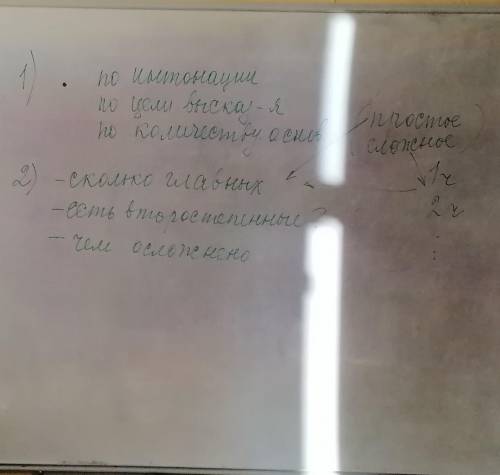 1) по интонации
по цели выскаж-я
по количеству основ (простое
сложное)
2) - сколько главных 1ч
- есть второстепенные? 2ч
- чем осложнено